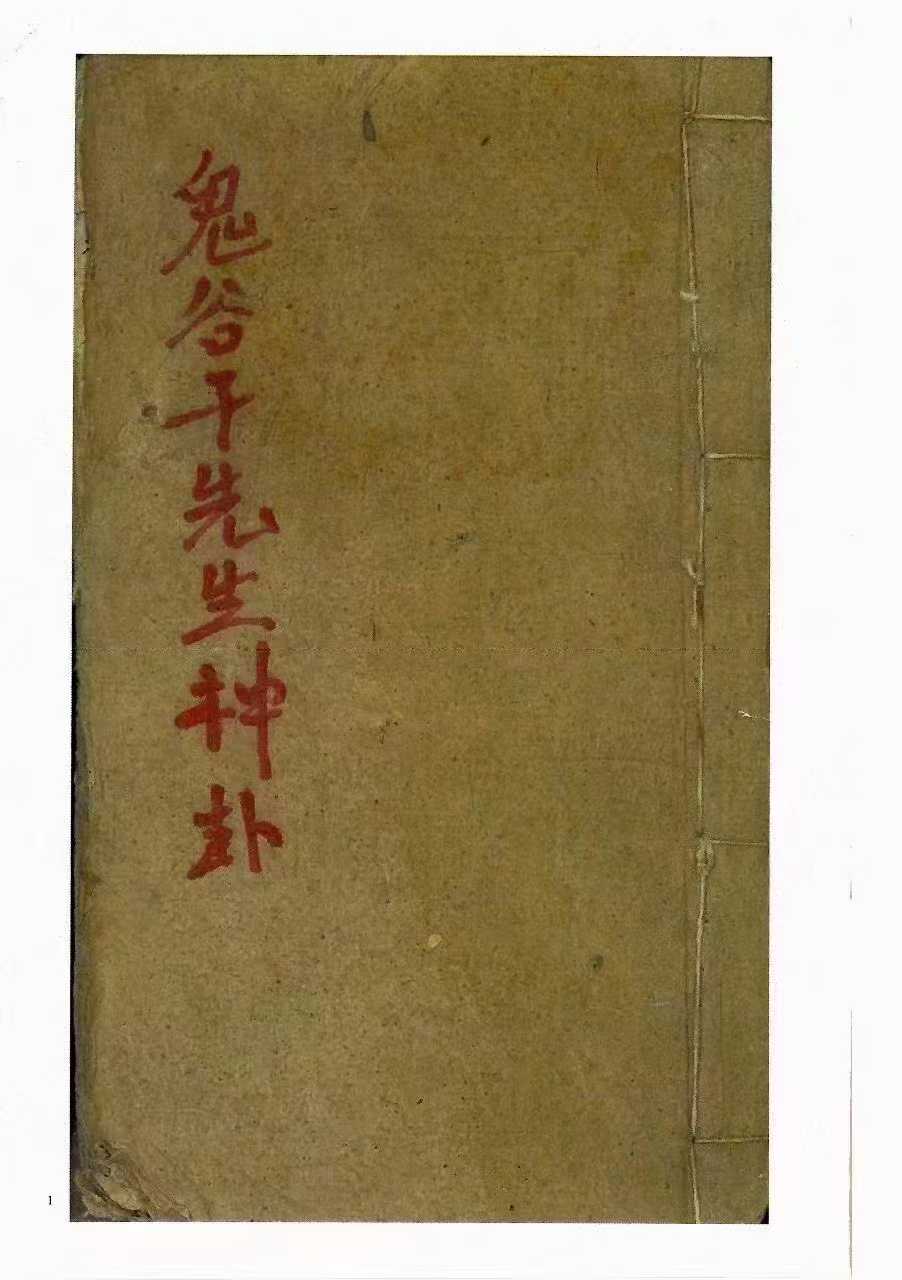 鬼谷子先生神卦
1